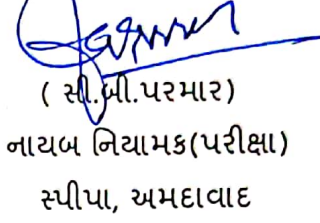 ( સી.બી.પરમાર)
નાયબ નિયામક(પરીક્ષા)
સ્પીપા, અમદાવાદ